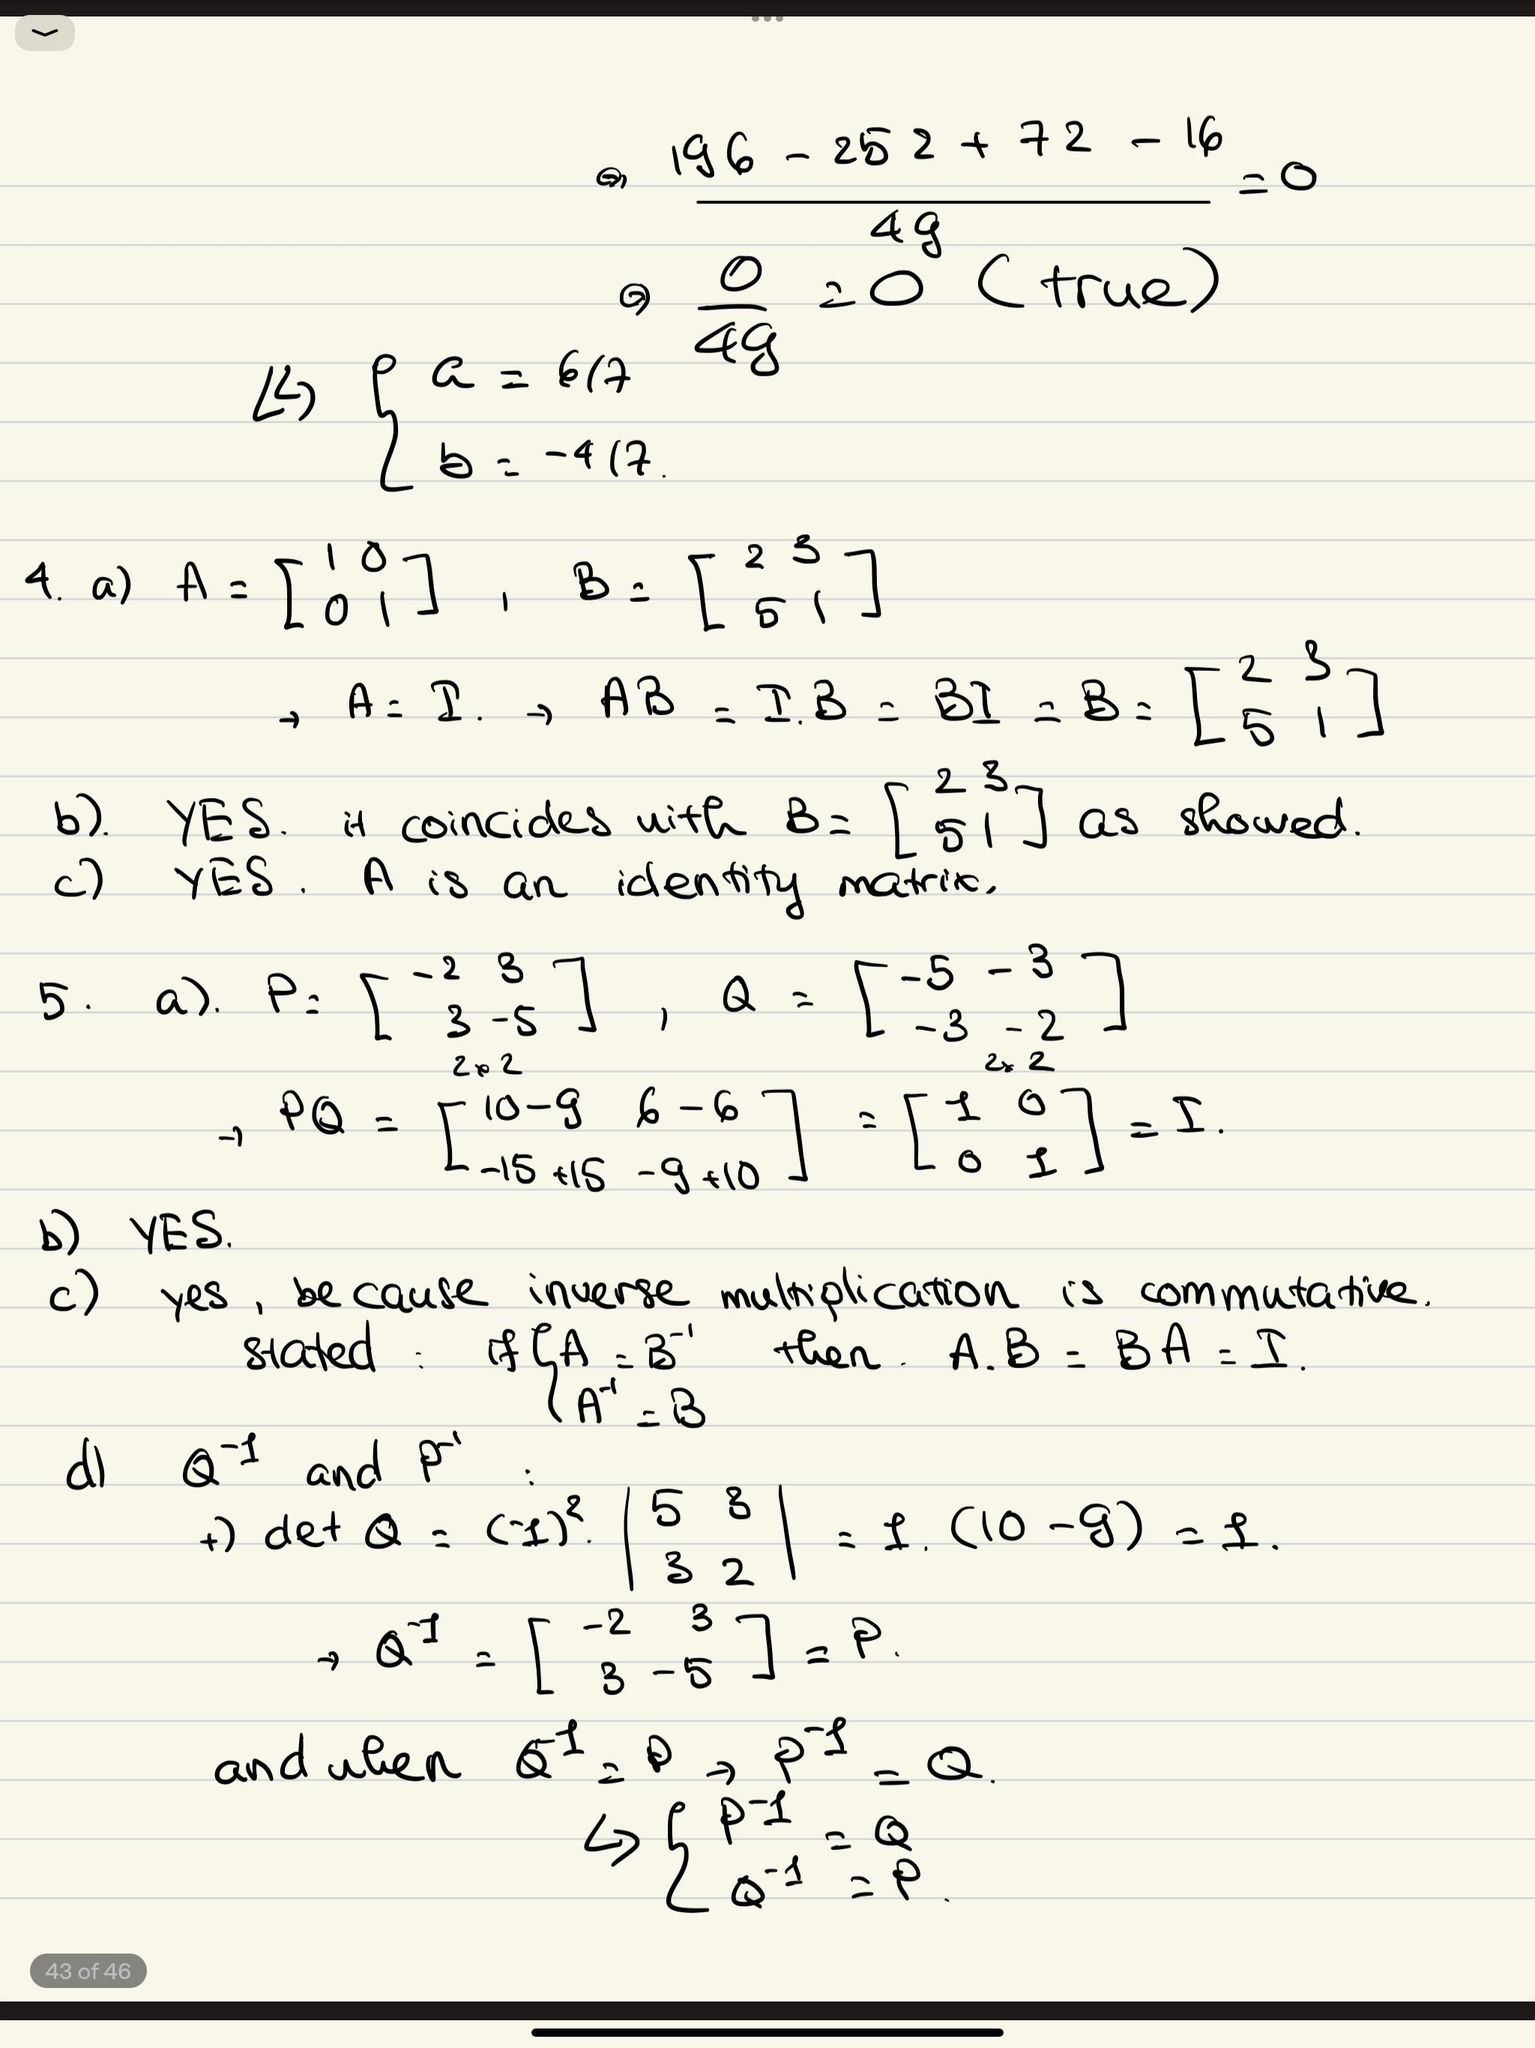 ⇔ 196 - 252 + 72 - 16 / 49 = 0
⇔ 0/49 = 0 (true)
↳ { a = 6/7
b = -4/7.
4. a) A = [1 0; 0 1] , B = [2 3; 5 1]
→ A = I. → AB = I.B = BI = B = [2 3; 5 1]
b). YES. it coincides with B = [2 3; 5 1] as showed.
c) YES. A is an identity matrix.
5. a). P = [-2 3; 3 -5] 2x2 , Q = [-5 -3; -3 -2] 2x2
→ PQ = [10-9 6-6; -15+15 -9+10] = [1 0; 0 1] = I.
b) YES.
c) yes, because inverse multiplication is commutative.
stated : if { A = B⁻¹ then. A.B = BA = I.
A⁻¹ = B
d) Q⁻¹ and P⁻¹ :
+) det Q = (-1)². |5 3; 3 2| = 1. (10 - 9) = 1.
→ Q⁻¹ = [-2 3; 3 -5] = P.
and when Q⁻¹ = P → P⁻¹ = Q.
↳ { P⁻¹ = Q
Q⁻¹ = P.
43 of 46